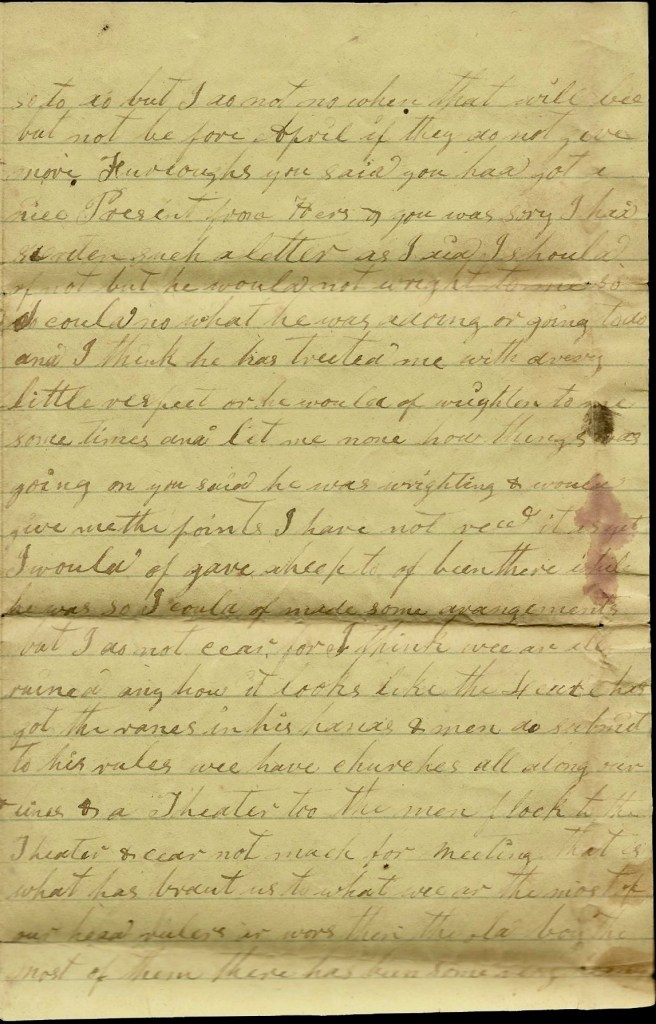 so to do but I do not no when that will bee
but not be fore April if they do not give
more Furloughs you said you had got a
nice Present from Hers & you was sory I had
such a letter as I said I should
not but he would not wright to me so
I could no what he was adoing or going to do
and I think he has treeted me with a very
little respect or he would of wrighten to me
some times and let me none how things was
going on you said he was wrighting & would
give me the points I have not recd it yet
I would of gave a heep to of been there while
he was so I could of made some arangements
but I do not cear for I think wee ar all
ruined any how it looks like the has
got the ranes in his hands & men do submit
to his rules wee have churches all along our
lines & a Theater too the men flock to the
Theater & cear not much for Meeting that is
what has braut us to what wee ar the most of
our head rulers ar wors then the old boy the
most of them there has been some very